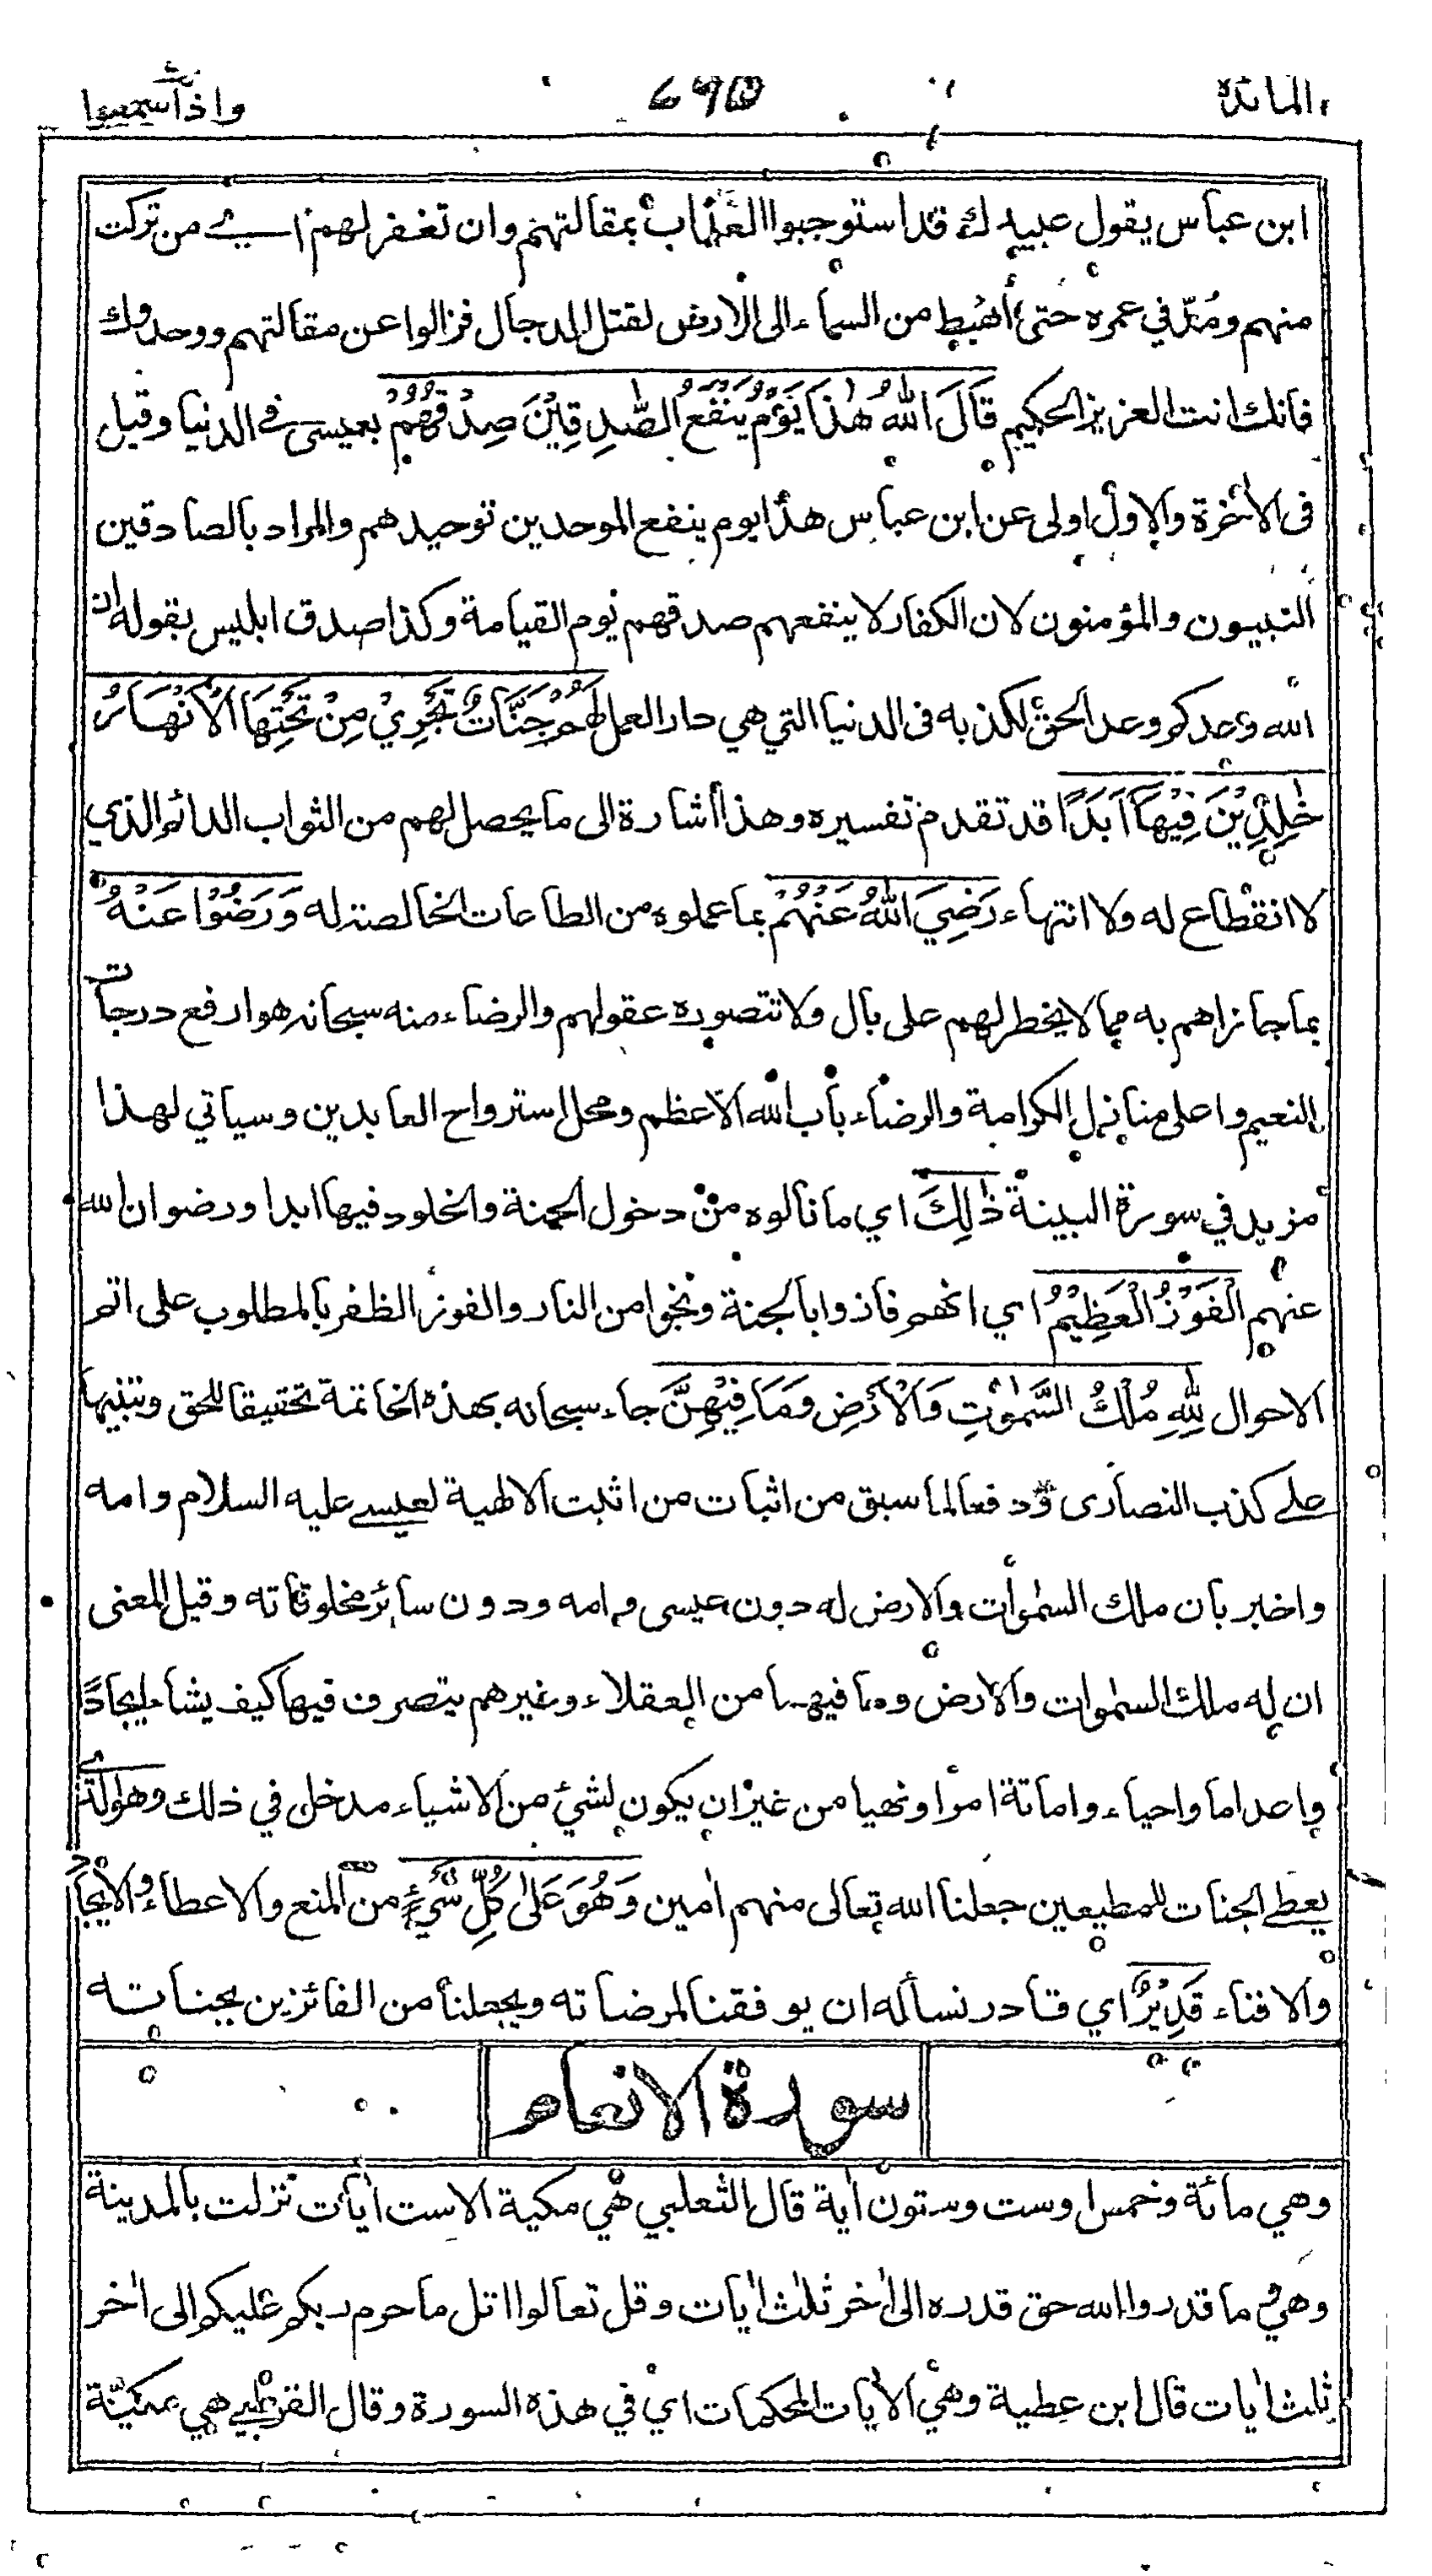 المائدة ٦٩٥ واذا سمعوا
ابن عباس يقول عبيدك قد استوجبوا العذاب بمقالتهم وان تغفر لهم اي من تركت
منهم ومُدّ في عمره حتى أُهبط من السماء الى الارض لقتل الدجال فزالوا عن مقالتهم ووحدوك
فانك انت العزيز الحكيم قَالَ اللهُ هٰذَا يَوْمُ يَنْفَعُ الصّٰدِقِيْنَ صِدْقُهُمْ بعيسى في الدنيا وقيل
فى الأخرة والاول اولى عن ابن عباس هذا يوم ينفع الموحدين توحيدهم والمراد بالصادقين
النبيون والمؤمنون لان الكفار لا ينفعهم صدقهم يوم القيامة وكذا صدق ابليس بقوله ان
الله وعدكم وعد الحق لكذبه فى الدنيا التي هي دار العمل لَهُمْ جَنَّاتٌ تَجْرِيْ مِنْ تَحْتِهَا الْأَنْهَارُ
خٰلِدِيْنَ فِيْهَا اَبَدًا قد تقدم تفسيره وهذا أشارة الى ما يحصل لهم من الثواب الدائم الذي
لا انقطاع له ولا انتهاء رَضِيَ اللهُ عَنْهُمْ بما عملوه من الطاعات الخالصة له وَرَضُوْا عَنْهُ
بما جازاهم به مما لا يخطر لهم على بال ولا تتصوره عقولهم والرضاء منه سبحانه هو ارفع درجات
النعيم واعلى منازل الكرامة والرضاء باب الله الاعظم ومحل استرواح العابدين وسياتي لهذا
مزيد في سورة البينة ذٰلِكَ اي ما نالوه من دخول الجنة والخلود فيها ابدا ورضوان الله
عنهم الْفَوْزُ الْعَظِيْمُ اي انهم فازوا بالجنة ونجوا من النار والفوز الظفر بالمطلوب على اتم
الاحوال لِلّٰهِ مُلْكُ السَّمٰوٰتِ وَالْاَرْضِ وَمَا فِيْهِنَّ جاء سبحانه بهذه الخاتمة تحقيقا للحق وتنبيها
على كذب النصارى ودفعا لما سبق من اثبات من اثبت الالهية لعيسى عليه السلام وامه
واخبر بان ملك السمٰوات والارض له دون عيسى وامه ودون سائر مخلوقاته وقيل المعنى
ان له ملك السمٰوات والارض وما فيها من العقلاء وغيرهم يتصرف فيها كيف يشاء ايجادًا
واعداما واحياء واماتة امرا ونهيا من غير ان يكون لشيء من الاشياء مدخل في ذلك وهو الذي
يعطي الجنات للمطيعين جعلنا الله تعالى منهم اٰمين وَهُوَ عَلٰى كُلِّ شَيْءٍ من المنع والاعطاء والايجاد
والافناء قَدِيْرٌ اي قادر نسأله ان يوفقنا لمرضاته ويجعلنا من الفائزين بجناته
سورة الانعام
وهي مائة وخمس او ست وستون اٰية قال الثعلبي هي مكية الا ست اٰيات نزلت بالمدينة
وهي ما قدروا الله حق قدره الى اٰخر ثلٰث اٰيات وقل تعالوا اتل ما حرم ربكم عليكم الى اٰخر
ثلث اٰيات قال ابن عطية وهي الاٰيات المحكمات اي في هذه السورة وقال القرطبي هي مكيّة